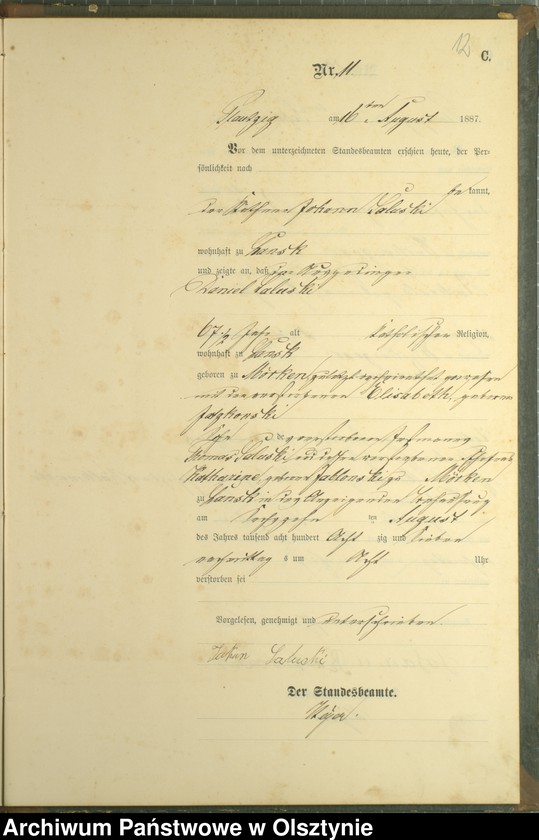 12
C.
Nr. 11
am 16ten August 1887.
Vor dem unterzeichneten Standesbeamten erschien heute, der Per-
sönlichkeit nach
be kannt,
der Käthner Johann Saluski
wohnhaft zu Lansk
und zeigte an, daß der
Daniel Saluski
67 1/2 Jahr alt katholischer Religion,
wohnhaft zu Lansk
geboren zu Mörken, zuletzt verheirathet gewesen
mit der verstorbenen Elisabeth, geborne
Sohn des verstorbenen
Thomas Saluski, und dessen verstorbenen Ehefrau
Katharine, geborne Jablonski, Mörken
zu Lansk in des Anzeigenden Behausung
am Sechszehn ten August
des Jahres tausend acht hundert Acht zig und Sieben
Vormittag s um Acht Uhr
verstorben sei
Vorgelesen, genehmigt und unterschrieben.
Johan Saluski
Der Standesbeamte.
Archiwum Państwowe w Olsztynie